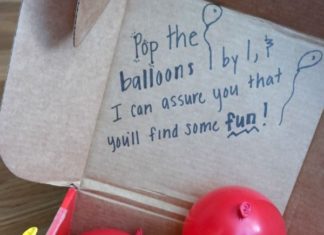 Pop the
balloons 1 by 1, &
I can assure you that
you'll find some fun!